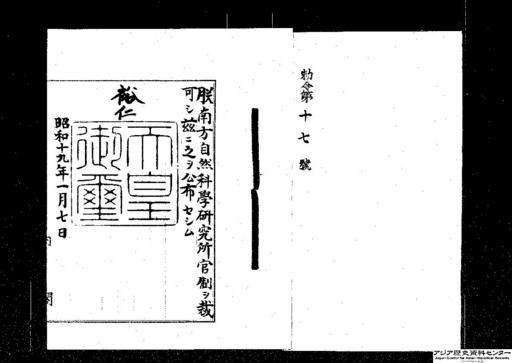 勅令第十七號
朕南方自然科學研究所官制ヲ裁
可シ茲ニ之ヲ公布セシム
裕仁
天皇
御璽
昭和十九年一月七日
内閣
アジア歴史資料センター
Japan Center for Asian Historical Records